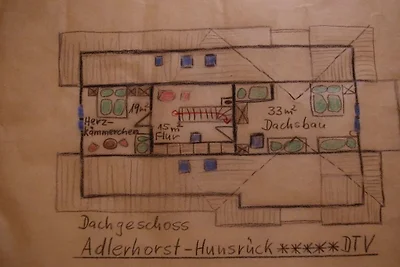 19m²
Herz-
kämmerchen
15m²
Flur
33m²
Dachsbau
Dachgeschoss
Adlerhorst-Hunsrück ***** DTV